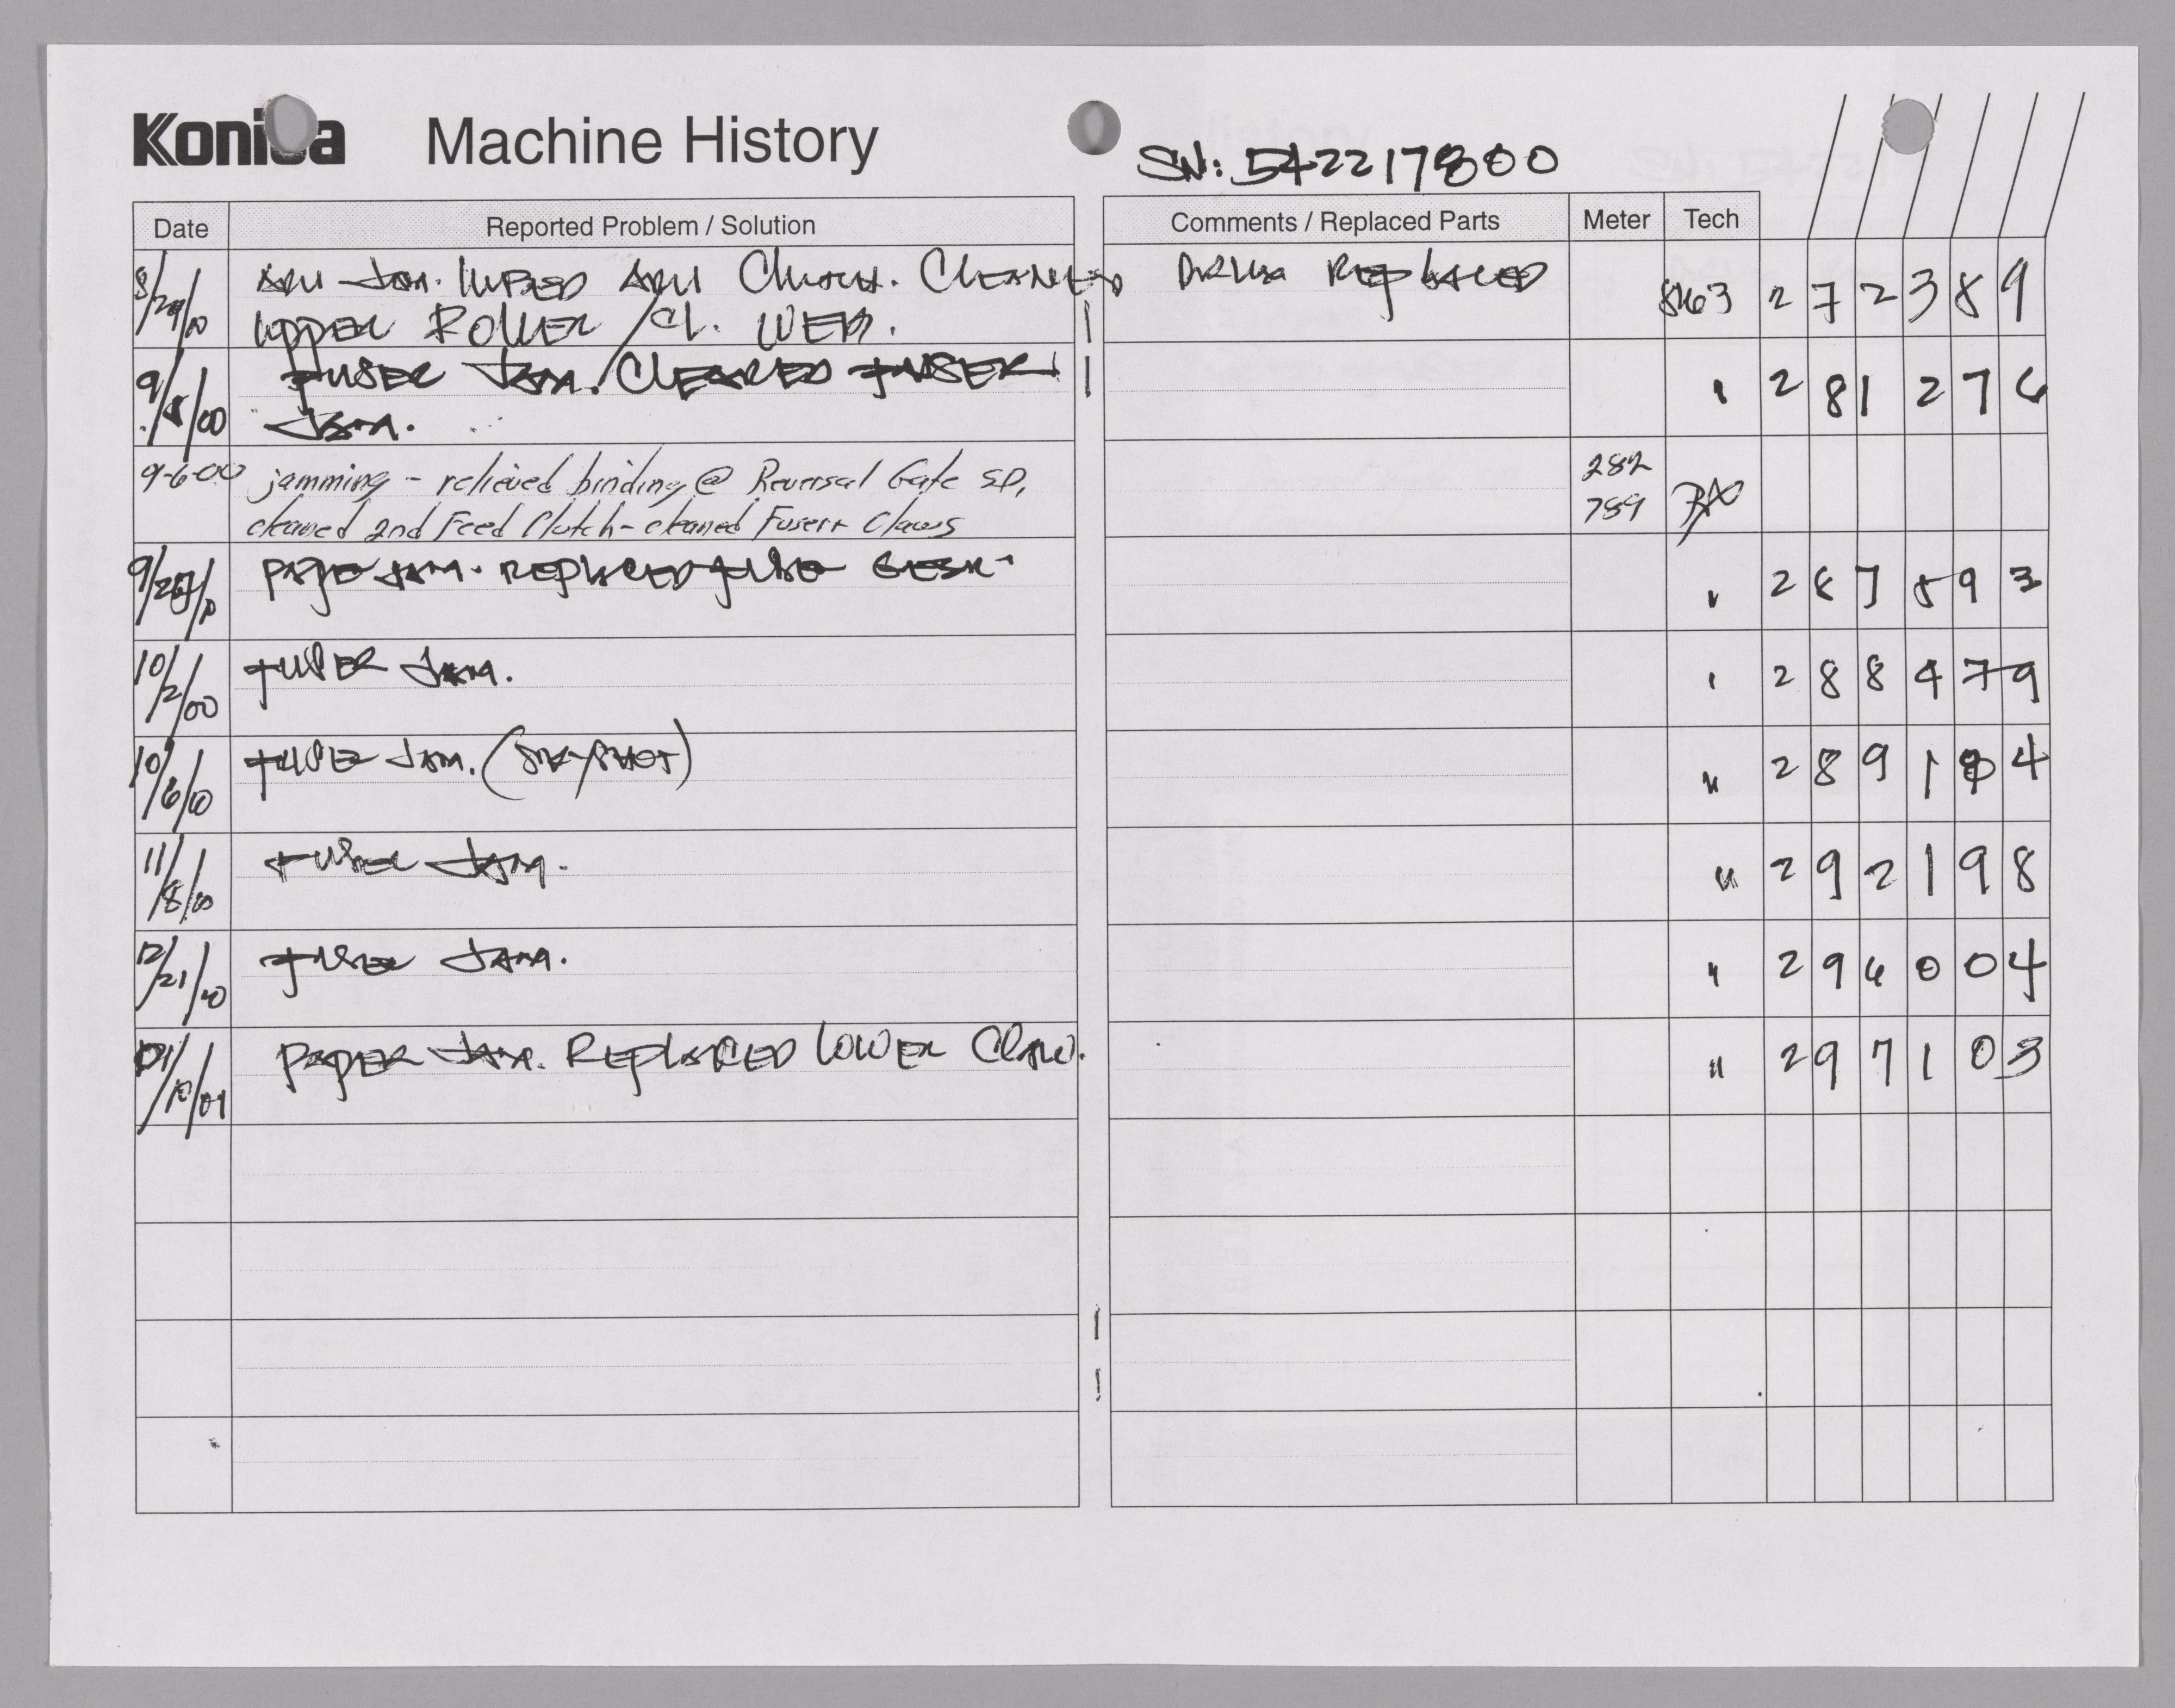 Konica Machine History
SN: 542217800
Date Reported Problem / Solution Comments / Replaced Parts Meter Tech
8/29/00 ADU JAM. LUBED ADU CLUTCH. CLEANED DRUM REPLACED 8163 2 7 2 3 8 9
UPPER ROLLER / CL. WEB.
9/5/00 FUSER JAM. CLEARED FUSER " 2 8 1 2 7 6
JAM.
9-6-00 jamming - relieved binding @ Reversal Gate SD, 282
cleaned 2nd Feed Clutch - cleaned Fuser + Claws 789
PAPER JAM. REPLACED FUSER GEAR " 2 8 7 8 9 3
10/2/00 FUSER JAM. " 2 8 8 4 7 9
10/6/00 FUSER JAM. (SNAPSHOT) " 2 8 9 1 4
11/8/00 FUSER JAM. " 2 9 2 1 9 8
12/21/00 FUSER JAM. " 2 9 6 0 0 4
PAPER JAM. REPLACED LOWER CLAW. " 2 9 7 1 0 3